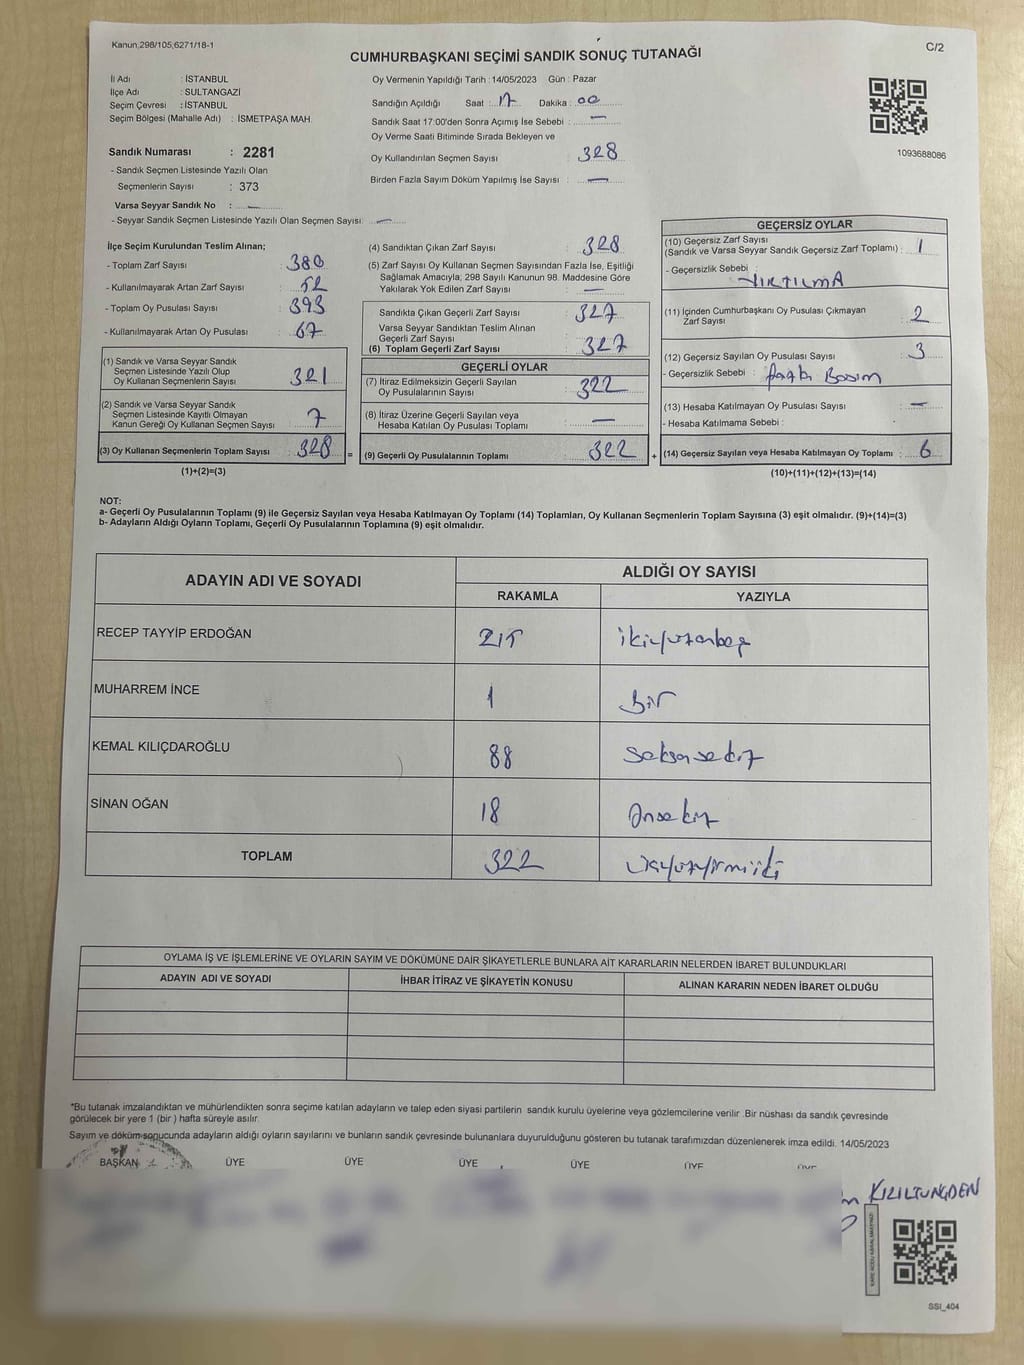 Kanun,298/105,6271/18-1
C/2
CUMHURBAŞKANI SEÇİMİ SANDIK SONUÇ TUTANAĞI
İl Adı : İSTANBUL
İlçe Adı : SULTANGAZİ
Seçim Çevresi : İSTANBUL
Seçim Bölgesi (Mahalle Adı) : İSMETPAŞA MAH.
Sandık Numarası : 2281
- Sandık Seçmen Listesinde Yazılı Olan
Seçmenlerin Sayısı : 373
Varsa Seyyar Sandık No : —
- Seyyar Sandık Seçmen Listesinde Yazılı Olan Seçmen Sayısı: —
Oy Vermenin Yapıldığı Tarih : 14/05/2023 Gün : Pazar
Sandığın Açıldığı Saat : 17 Dakika : 00
Sandık Saat 17:00'den Sonra Açımış İse Sebebi : —
Oy Verme Saati Bitiminde Sırada Bekleyen ve
Oy Kullandırılan Seçmen Sayısı 328
Birden Fazla Sayım Döküm Yapılmış İse Sayısı : —
1093688086
İlçe Seçim Kurulundan Teslim Alınan;
- Toplam Zarf Sayısı : 380
- Kullanılmayarak Artan Zarf Sayısı : 52
- Toplam Oy Pusulası Sayısı : 393
- Kullanılmayarak Artan Oy Pusulası : 67
(1) Sandık ve Varsa Seyyar Sandık
Seçmen Listesinde Yazılı Olup
Oy Kullanan Seçmenlerin Sayısı : 321
(2) Sandık ve Varsa Seyyar Sandık
Seçmen Listesinde Kayıtlı Olmayan
Kanun Gereği Oy Kullanan Seçmen Sayısı : 7
(3) Oy Kullanan Seçmenlerin Toplam Sayısı : 328 =
(1)+(2)=(3)
(4) Sandıktan Çıkan Zarf Sayısı : 328
(5) Zarf Sayısı Oy Kullanan Seçmen Sayısından Fazla İse, Eşitliği
Sağlamak Amacıyla; 298 Sayılı Kanunun 98. Maddesine Göre
Yakılarak Yok Edilen Zarf Sayısı : —
Sandıkta Çıkan Geçerli Zarf Sayısı : 327
Varsa Seyyar Sandıktan Teslim Alınan
Geçerli Zarf Sayısı :
(6) Toplam Geçerli Zarf Sayısı : 327
GEÇERLİ OYLAR
(7) İtiraz Edilmeksizin Geçerli Sayılan
Oy Pusulalarının Sayısı : 322
(8) İtiraz Üzerine Geçerli Sayılan veya
Hesaba Katılan Oy Pusulası Toplamı : —
(9) Geçerli Oy Pusulalarının Toplamı : 322 +
GEÇERSİZ OYLAR
(10) Geçersiz Zarf Sayısı
(Sandık ve Varsa Seyyar Sandık Geçersiz Zarf Toplamı) : 1
- Geçersizlik Sebebi : YIRTILMA
(11) İçinden Cumhurbaşkanı Oy Pusulası Çıkmayan
Zarf Sayısı : 2
(12) Geçersiz Sayılan Oy Pusulası Sayısı : 3
- Geçersizlik Sebebi : Fazla Basım
(13) Hesaba Katılmayan Oy Pusulası Sayısı : —
- Hesaba Katılmama Sebebi :
(14) Geçersiz Sayılan veya Hesaba Katılmayan Oy Toplamı : 6
(10)+(11)+(12)+(13)=(14)
NOT:
a- Geçerli Oy Pusulalarının Toplamı (9) ile Geçersiz Sayılan veya Hesaba Katılmayan Oy Toplamı (14) Toplamları, Oy Kullanan Seçmenlerin Toplam Sayısına (3) eşit olmalıdır. (9)+(14)=(3)
b- Adayların Aldığı Oyların Toplamı, Geçerli Oy Pusulalarının Toplamına (9) eşit olmalıdır.
ADAYIN ADI VE SOYADI ALDIĞI OY SAYISI
RAKAMLA YAZIYLA
RECEP TAYYİP ERDOĞAN 215 ikiyüzonbeş
MUHARREM İNCE 1 Bir
KEMAL KILIÇDAROĞLU 88 Seksensekiz
SİNAN OĞAN 18 Onsekiz
TOPLAM 322 üçyüzyirmiiki
OYLAMA İŞ VE İŞLEMLERİNE VE OYLARIN SAYIM VE DÖKÜMÜNE DAİR ŞİKAYETLERLE BUNLARA AİT KARARLARIN NELERDEN İBARET BULUNDUKLARI
ADAYIN ADI VE SOYADI İHBAR İTİRAZ VE ŞİKAYETİN KONUSU ALINAN KARARIN NEDEN İBARET OLDUĞU
*Bu tutanak imzalandıktan ve mühürlendikten sonra seçime katılan adayların ve talep eden siyasi partilerin sandık kurulu üyelerine veya gözlemcilerine verilir .Bir nüshası da sandık çevresinde
görülecek bir yere 1 (bir ) hafta süreyle asılır.
Sayım ve döküm sonucunda adayların aldığı oyların sayılarını ve bunların sandık çevresinde bulunanlara duyurulduğunu gösteren bu tutanak tarafımızdan düzenlenerek imza edildi. 14/05/2023
BAŞKAN ÜYE ÜYE ÜYE ÜYE ÜYE
KIZILTUNÇDEN
SSI_404